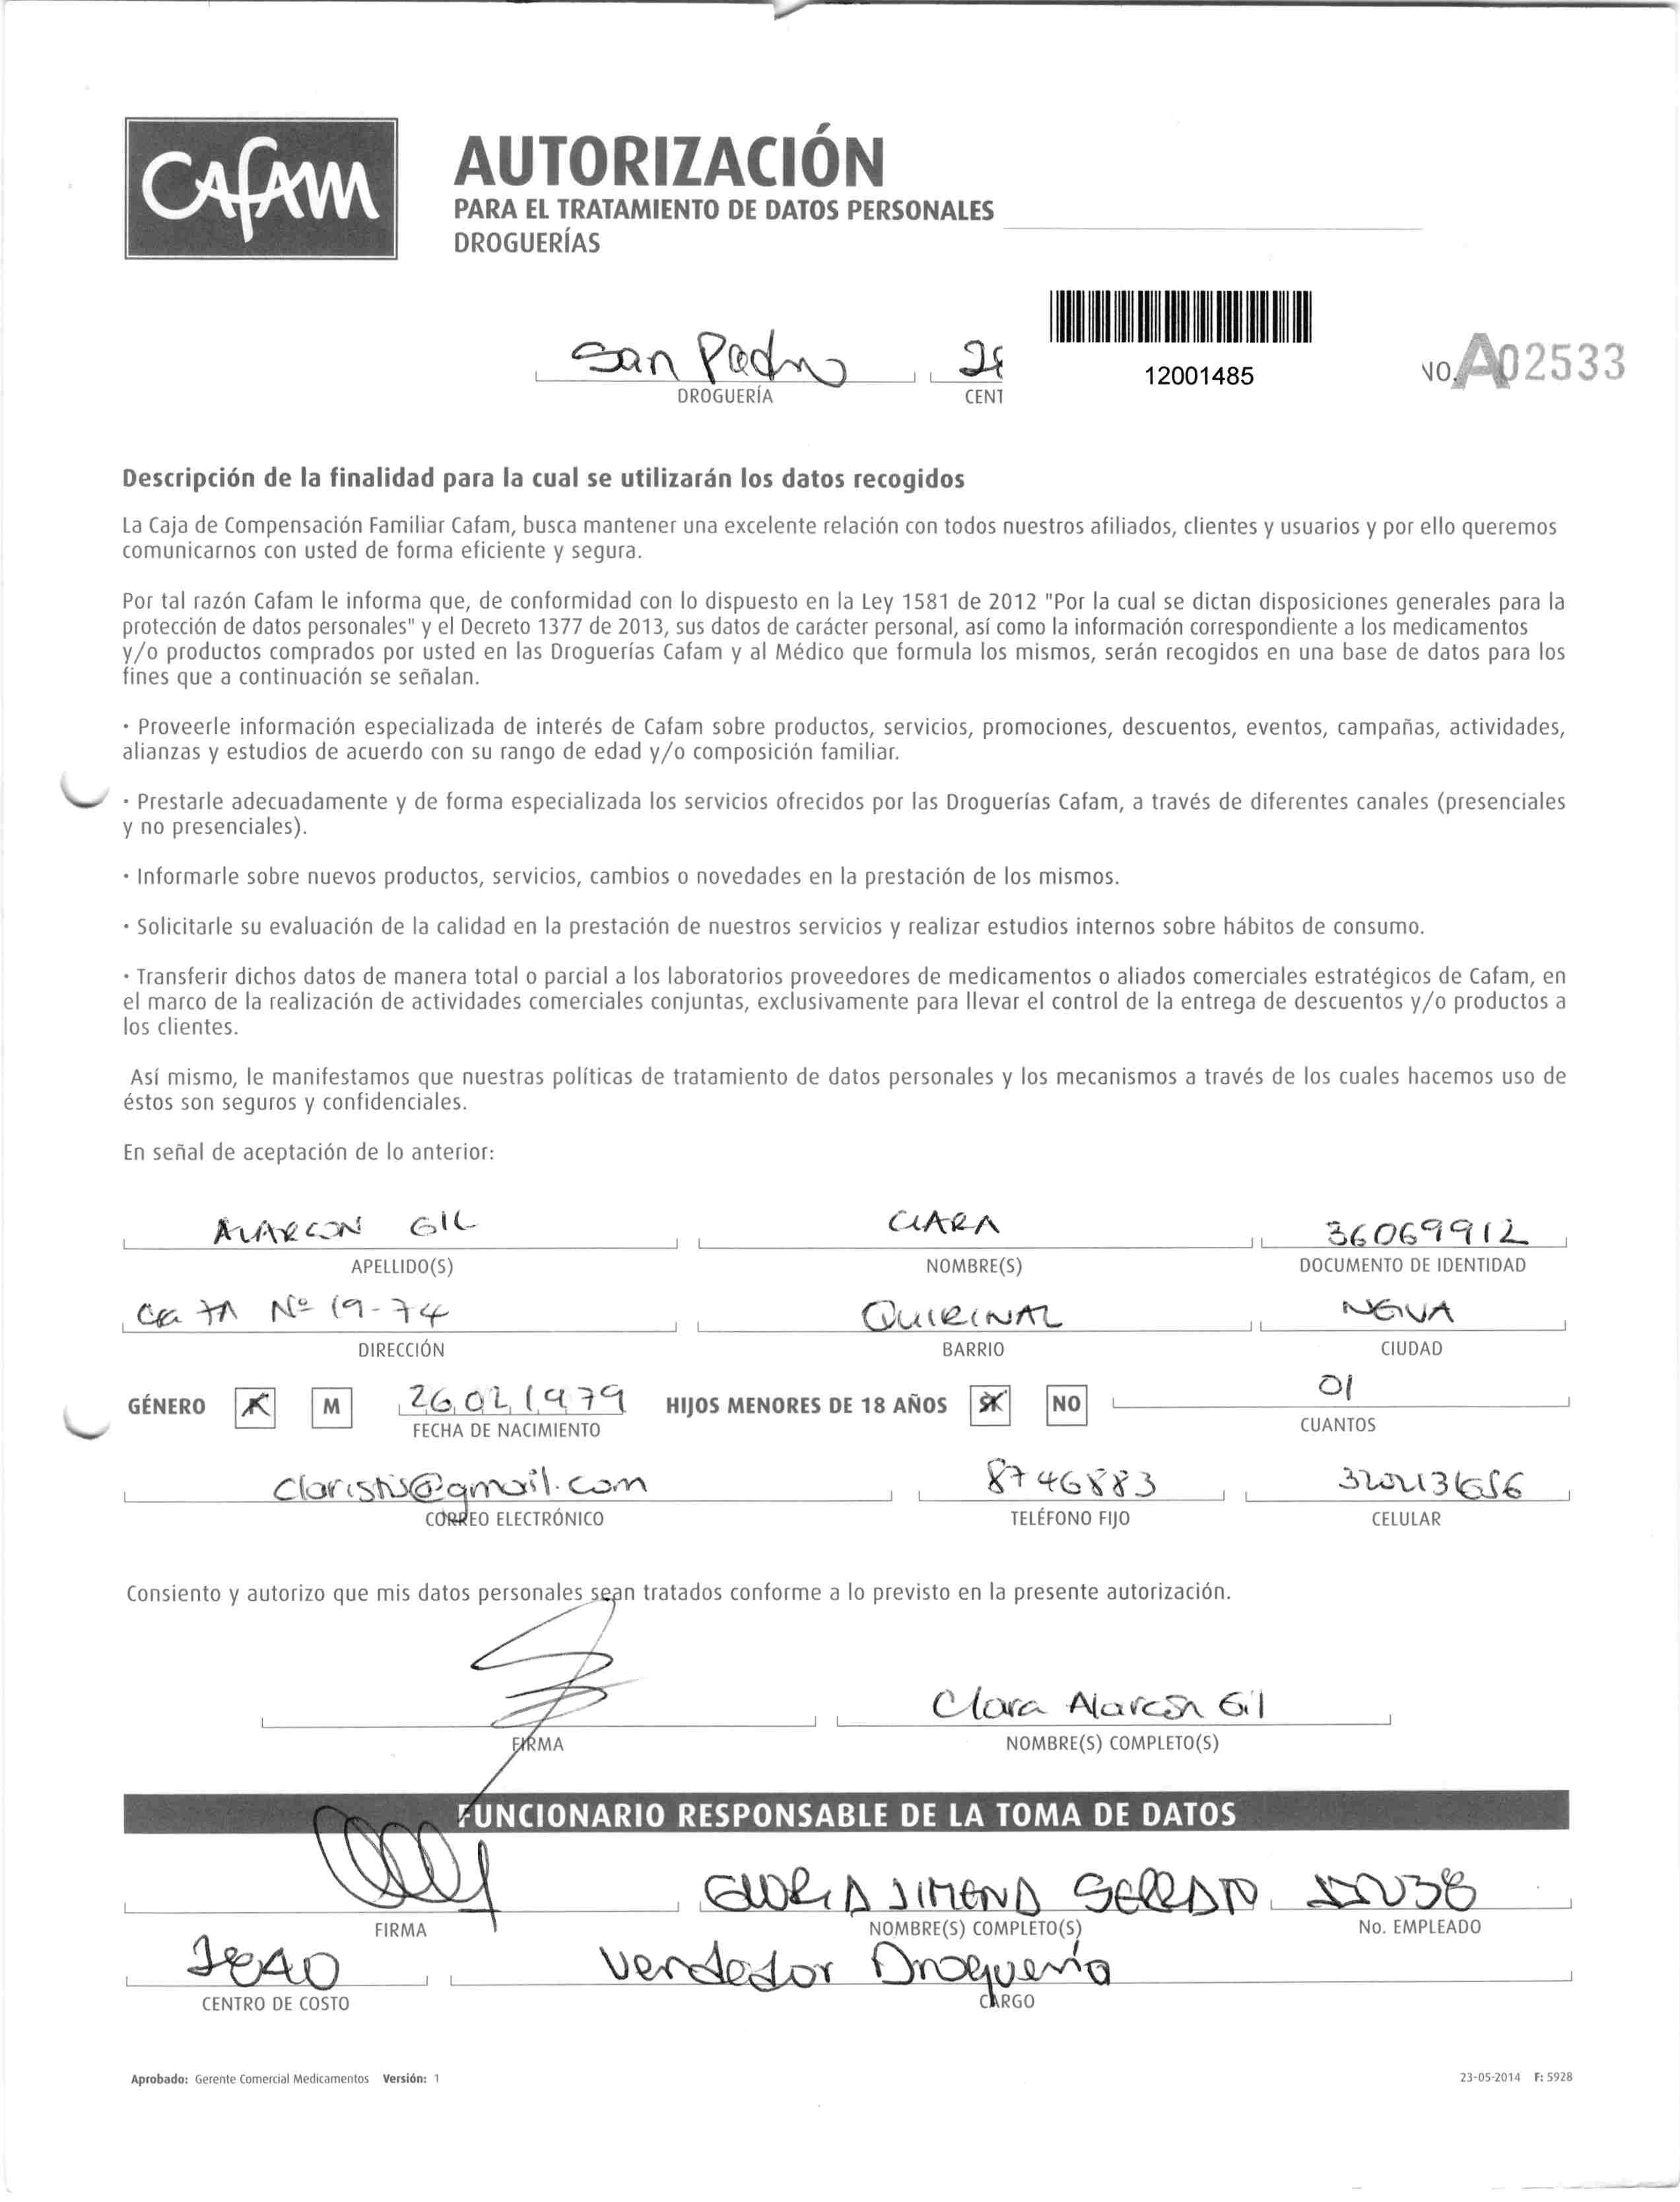 CAFAM
AUTORIZACIÓN
PARA EL TRATAMIENTO DE DATOS PERSONALES
DROGUERÍAS
San Pedro
DROGUERÍA
CENT
12001485
NO. A02533
Descripción de la finalidad para la cual se utilizarán los datos recogidos
La Caja de Compensación Familiar Cafam, busca mantener una excelente relación con todos nuestros afiliados, clientes y usuarios y por ello queremos
comunicarnos con usted de forma eficiente y segura.
Por tal razón Cafam le informa que, de conformidad con lo dispuesto en la Ley 1581 de 2012 "Por la cual se dictan disposiciones generales para la
protección de datos personales" y el Decreto 1377 de 2013, sus datos de carácter personal, así como la información correspondiente a los medicamentos
y/o productos comprados por usted en las Droguerías Cafam y al Médico que formula los mismos, serán recogidos en una base de datos para los
fines que a continuación se señalan.
· Proveerle información especializada de interés de Cafam sobre productos, servicios, promociones, descuentos, eventos, campañas, actividades,
alianzas y estudios de acuerdo con su rango de edad y/o composición familiar.
· Prestarle adecuadamente y de forma especializada los servicios ofrecidos por las Droguerías Cafam, a través de diferentes canales (presenciales
y no presenciales).
· Informarle sobre nuevos productos, servicios, cambios o novedades en la prestación de los mismos.
· Solicitarle su evaluación de la calidad en la prestación de nuestros servicios y realizar estudios internos sobre hábitos de consumo.
· Transferir dichos datos de manera total o parcial a los laboratorios proveedores de medicamentos o aliados comerciales estratégicos de Cafam, en
el marco de la realización de actividades comerciales conjuntas, exclusivamente para llevar el control de la entrega de descuentos y/o productos a
los clientes.
Así mismo, le manifestamos que nuestras políticas de tratamiento de datos personales y los mecanismos a través de los cuales hacemos uso de
éstos son seguros y confidenciales.
En señal de aceptación de lo anterior:
ALARCON GIL CLARA 36069912
APELLIDO(S) NOMBRE(S) DOCUMENTO DE IDENTIDAD
CRA 7A Nº 19-74 QUIRINAL NEIVA
DIRECCIÓN BARRIO CIUDAD
GÉNERO M 26 02 1979 HIJOS MENORES DE 18 AÑOS SI NO 01
FECHA DE NACIMIENTO CUANTOS
claristis@gmail.com 8746883
CORREO ELECTRÓNICO TELÉFONO FIJO CELULAR
Consiento y autorizo que mis datos personales sean tratados conforme a lo previsto en la presente autorización.
Clara Alarcón Gil
FIRMA NOMBRE(S) COMPLETO(S)
FUNCIONARIO RESPONSABLE DE LA TOMA DE DATOS
GLORIA JIMENA
FIRMA NOMBRE(S) COMPLETO(S) No. EMPLEADO
Vendedor Droguería
CENTRO DE COSTO CARGO
Aprobado: Gerente Comercial Medicamentos Versión: 1 23-05-2014 F: 5928